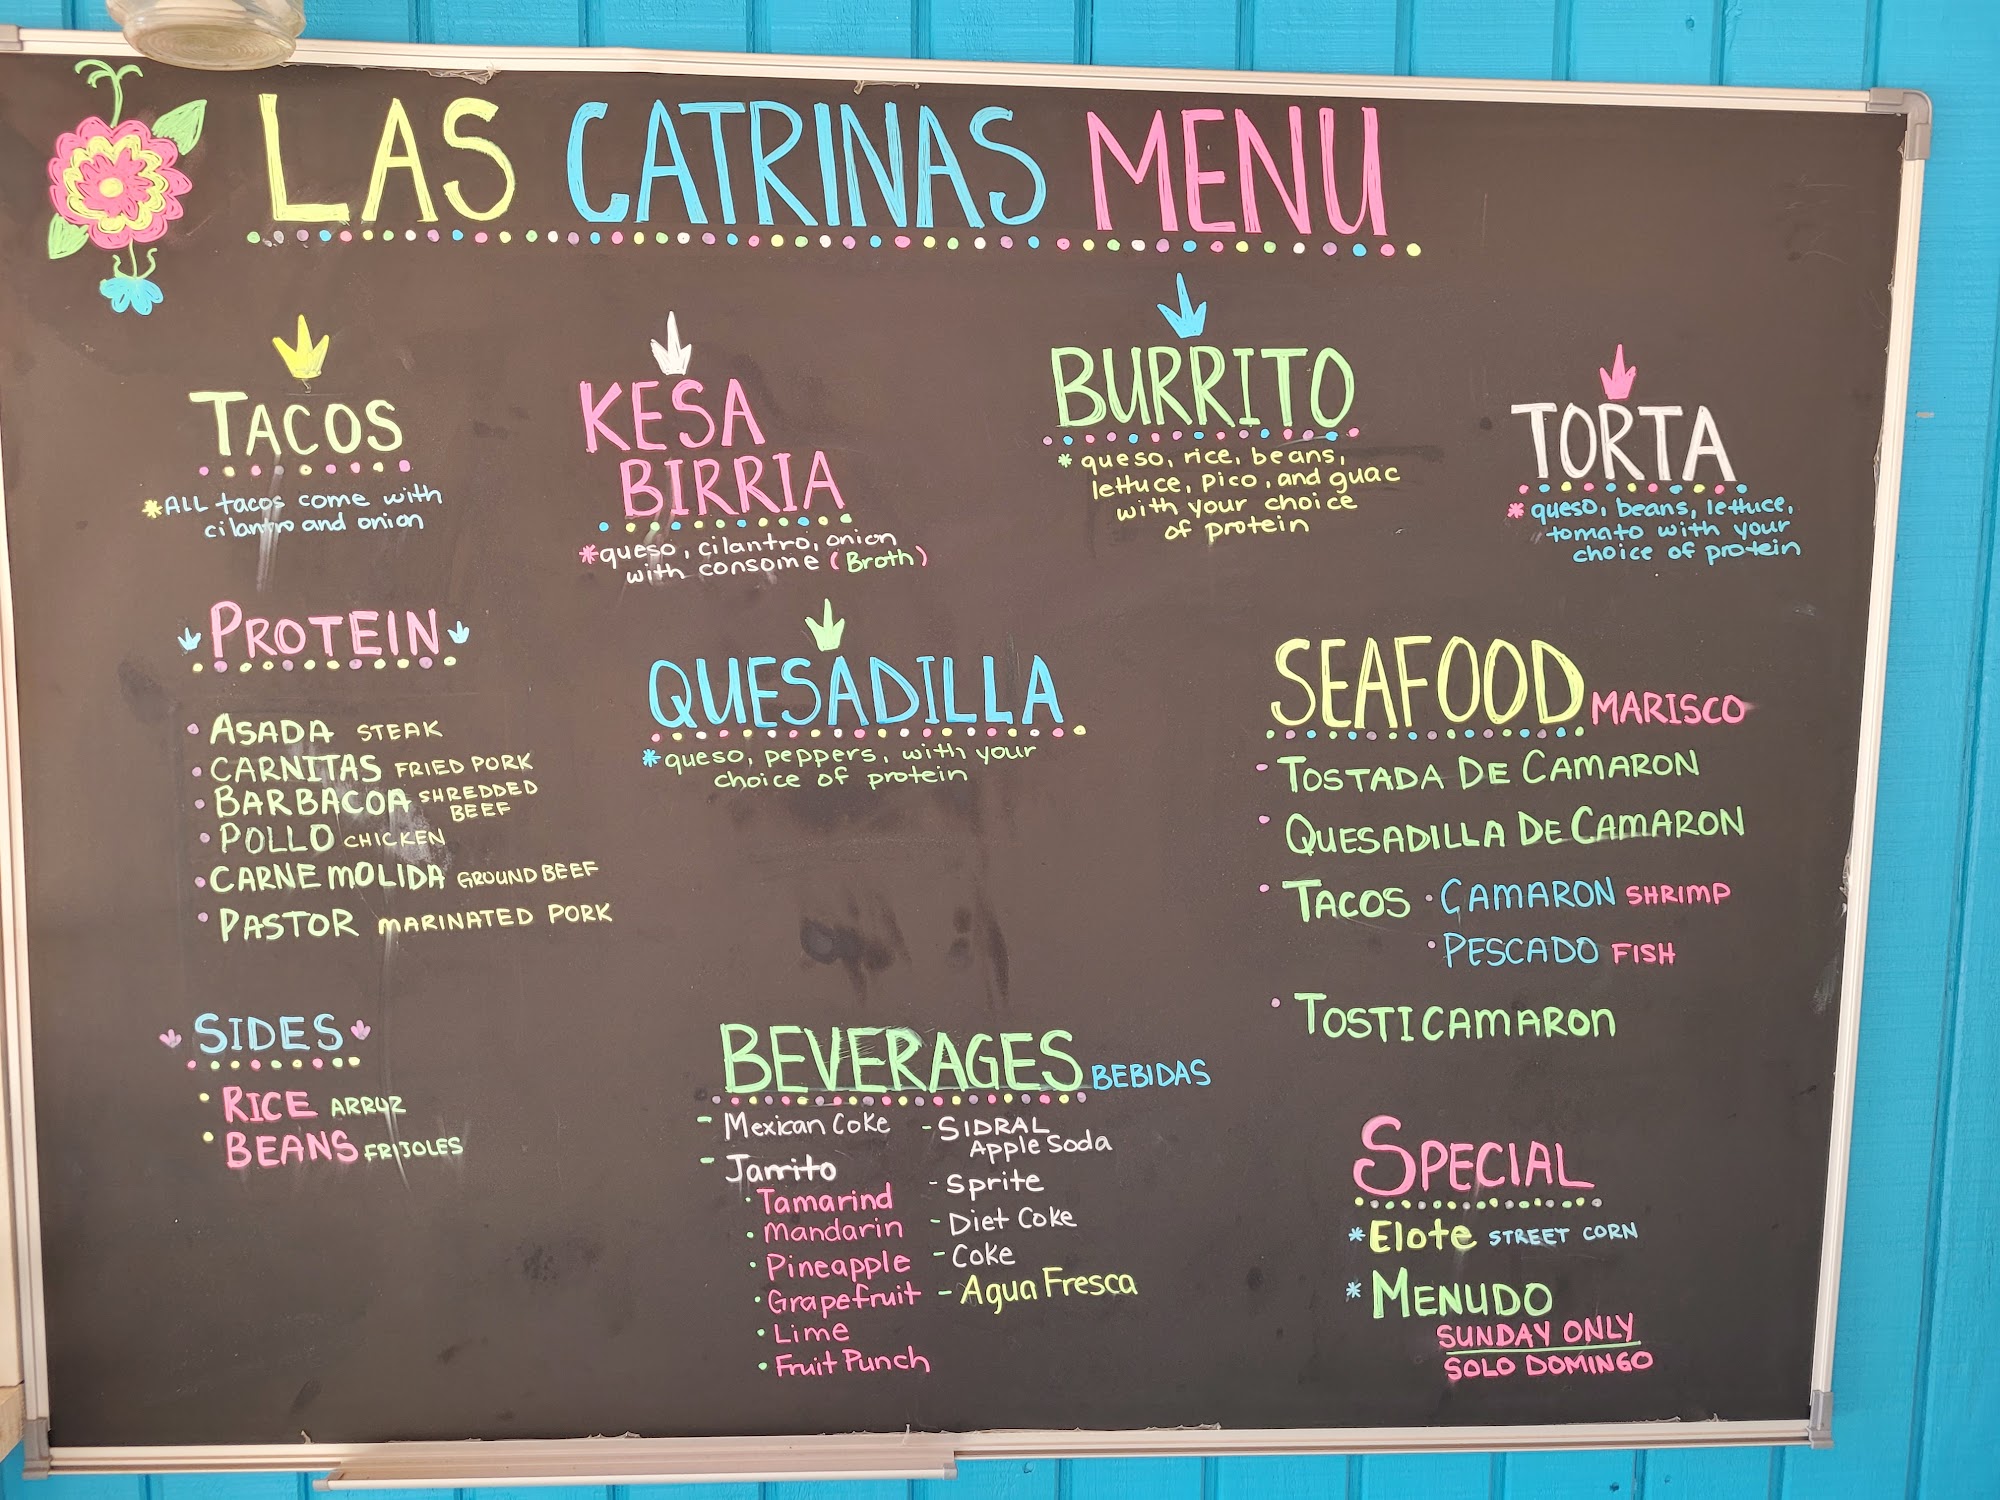 LAS CATRINAS MENU
TACOS
*ALL tacos come with
cilantro and onion
KESA
BIRRIA
*queso, cilantro, onion
with consome (Broth)
BURRITO
* queso, rice, beans,
lettuce, pico, and guac
with your choice
of protein
TORTA
* queso, beans, lettuce,
tomato with your
choice of protein
PROTEIN
• ASADA STEAK
• CARNITAS FRIED PORK
• BARBACOA SHREDDED
BEEF
• POLLO CHICKEN
• CARNE MOLIDA GROUND BEEF
• PASTOR MARINATED PORK
QUESADILLA
*queso, peppers, with your
choice of protein
SEAFOOD MARISCO
- TOSTADA DE CAMARON
• QUESADILLA DE CAMARON
• TACOS • CAMARON SHRIMP
• PESCADO FISH
• TOSTICAMARON
SIDES
• RICE ARROZ
• BEANS FRIJOLES
BEVERAGES BEBIDAS
- Mexican Coke
- Jarrito
• Tamarind
• Mandarin
• Pineapple
• Grapefruit
• Lime
• Fruit Punch
- SIDRAL
Apple Soda
- Sprite
- Diet Coke
- Coke
- Agua Fresca
SPECIAL
* Elote STREET CORN
* MENUDO
SUNDAY ONLY
SOLO DOMINGO